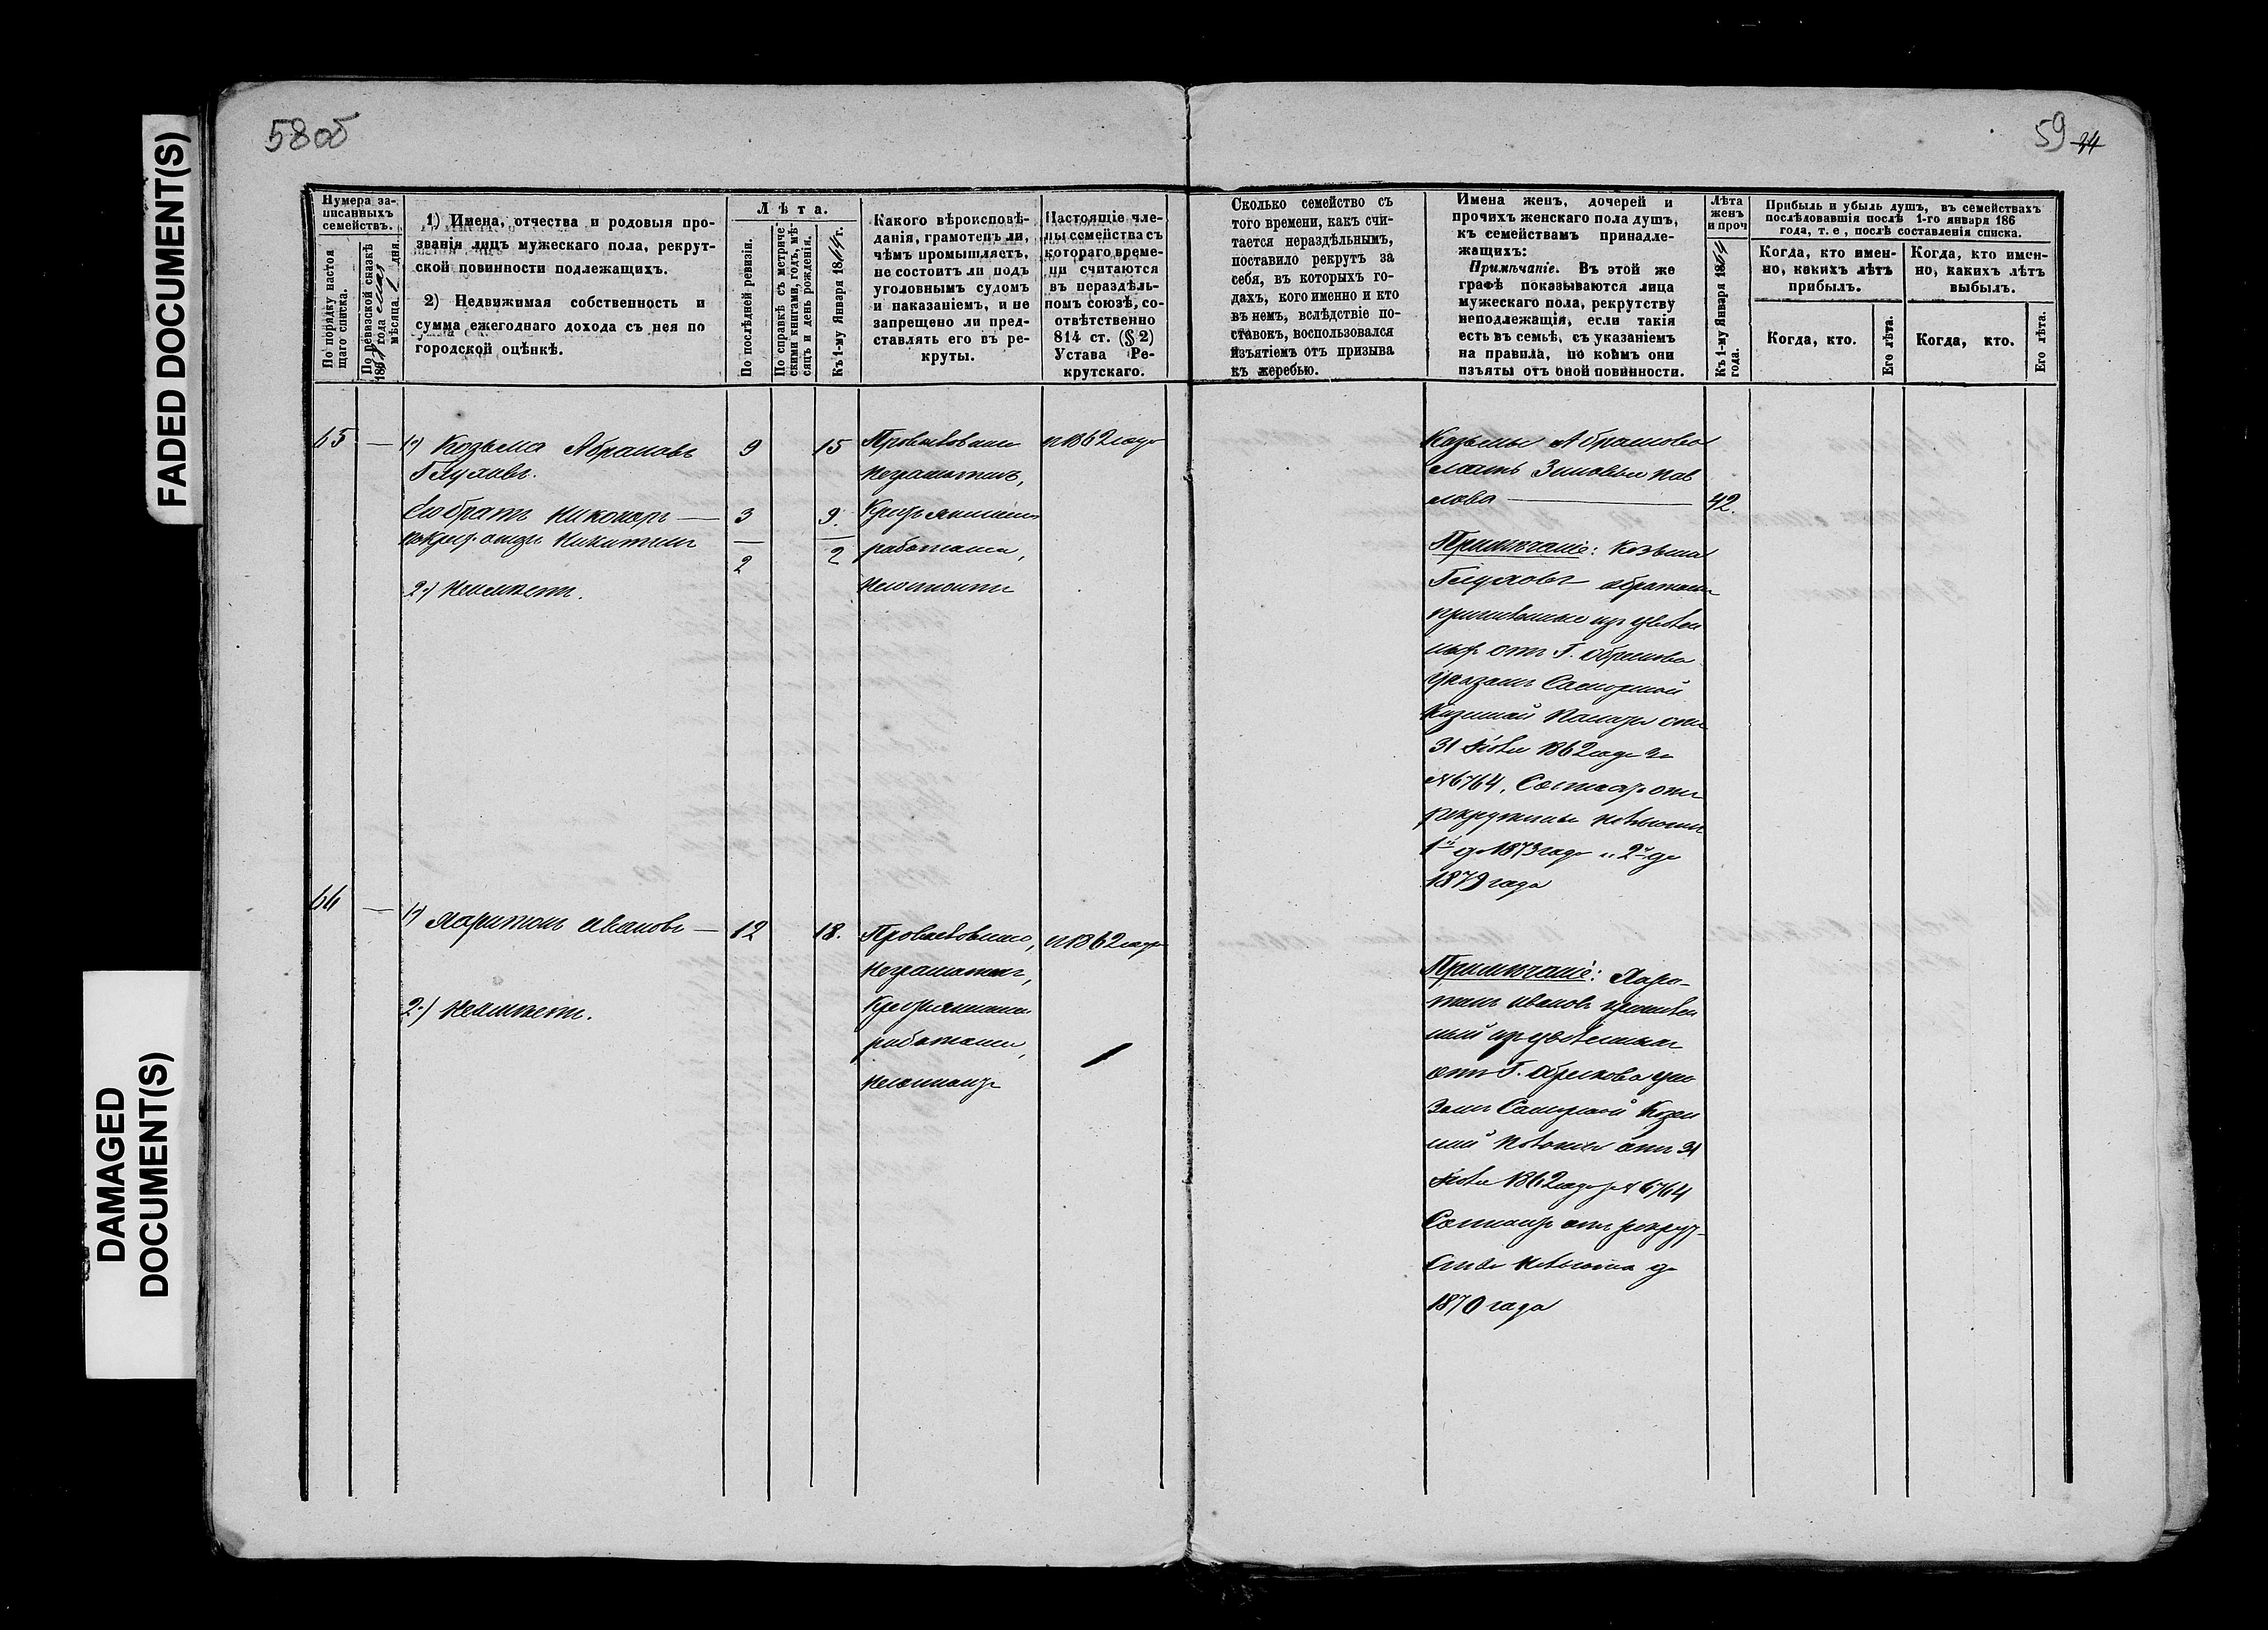 FADED DOCUMENT(S)
DAMAGED
DOCUMENT(S)
58 об
Нумера за-
писанныхъ
семействъ.
По порядку настоя
щаго списка.
По ревизской сказкѣ
186 года мая
мѣсяца 1 дня.
1) Имена, отчества и родовыя про-
званія лицъ мужескаго пола, рекрут-
ской повинности подлежащихъ.
2) Недвижимая собственность и
сумма ежегоднаго дохода съ нея по
городской оцѣнкѣ.
Лѣта.
По послѣдней ревизіи.
По справкѣ съ метриче-
скими книгами, годъ, мѣ-
сяцъ и день рожденія.
Къ 1-му Января 1864 г.
Какого вѣроисповѣ-
данія, грамотенъ ли,
чѣмъ промышляетъ,
не состоитъ ли подъ
уголовнымъ судомъ
и наказаніемъ, и не
запрещено ли пред-
ставлять его въ ре-
круты.
Настоящіе чле-
ны семейства съ
котораго време-
ни считаются
въ нераздѣль-
номъ союзѣ, со-
отвѣтственно
814 ст. (§ 2)
Устава Ре-
крутскаго.
65 — 1) Козьма Абрамовъ 9 15 Православнаго съ 1862 года
Глуховъ. неграмотенъ,
Его братъ Никоноръ — 3 9. Крестьянскими
по крест. отцу Никитинъ 2 2 работами,
2) Неимѣетъ. несостоитъ
66 — 1) Харитонъ Ивановъ — 12 18. Православнаго, съ 1862 года
неграмотенъ,
2) Неимѣетъ. Крестьянскими
работами,
несостоитъ
59 34
Сколько семейство съ
того времени, какъ счи-
тается нераздѣльнымъ,
поставило рекрутъ за
себя, въ которыхъ го-
дахъ, кого именно и кто
въ немъ, вслѣдствіе по-
ставокъ, воспользовался
изъятіемъ отъ призыва
къ жеребью.
Имена женъ, дочерей и
прочихъ женскаго пола душъ,
къ семействамъ принадле-
жащихъ:
Примѣчаніе. Въ этой же
графѣ показываются лица
мужескаго пола, рекрутству
неподлежащія, если такія
есть въ семьѣ, съ указаніемъ
на правила, по коимъ они
изъяты отъ оной повинности.
Лѣта
женъ
и проч
Къ 1-му Января 1864
года.
Прибыль и убыль душъ, въ семействахъ
послѣдовавшія послѣ 1-го января 186
года, т. е, послѣ составленія списка.
Когда, кто имен-
но, какихъ лѣтъ
прибылъ.
Когда, кто имен-
но, какихъ лѣтъ
выбылъ.
Когда, кто.
Его лѣта.
Когда, кто.
Его лѣта.
Козьмы Абрамова
мать Зиновья Пав
лова — 42.
Примѣчаніе: Козьма
Глуховъ съ братомъ
причисленные изъ уволен
ныхъ отъ Г. Абрамова
указомъ Самарской
Казенной Палаты отъ
31 Іюля 1862 года за
№ 6764. Состоятъ отъ
рекрутства на льготѣ
1й до 1873 года и 2й до
1879 года
Примѣчаніе: Хари-
тонъ Ивановъ причислен
ный изъ уволенныхъ
отъ Г. ука
зомъ Самарской Казен
ной Палаты отъ 31
Іюля 1862 года за № 6764
Состоитъ отъ рекрут-
ства на льготѣ до
1870 года